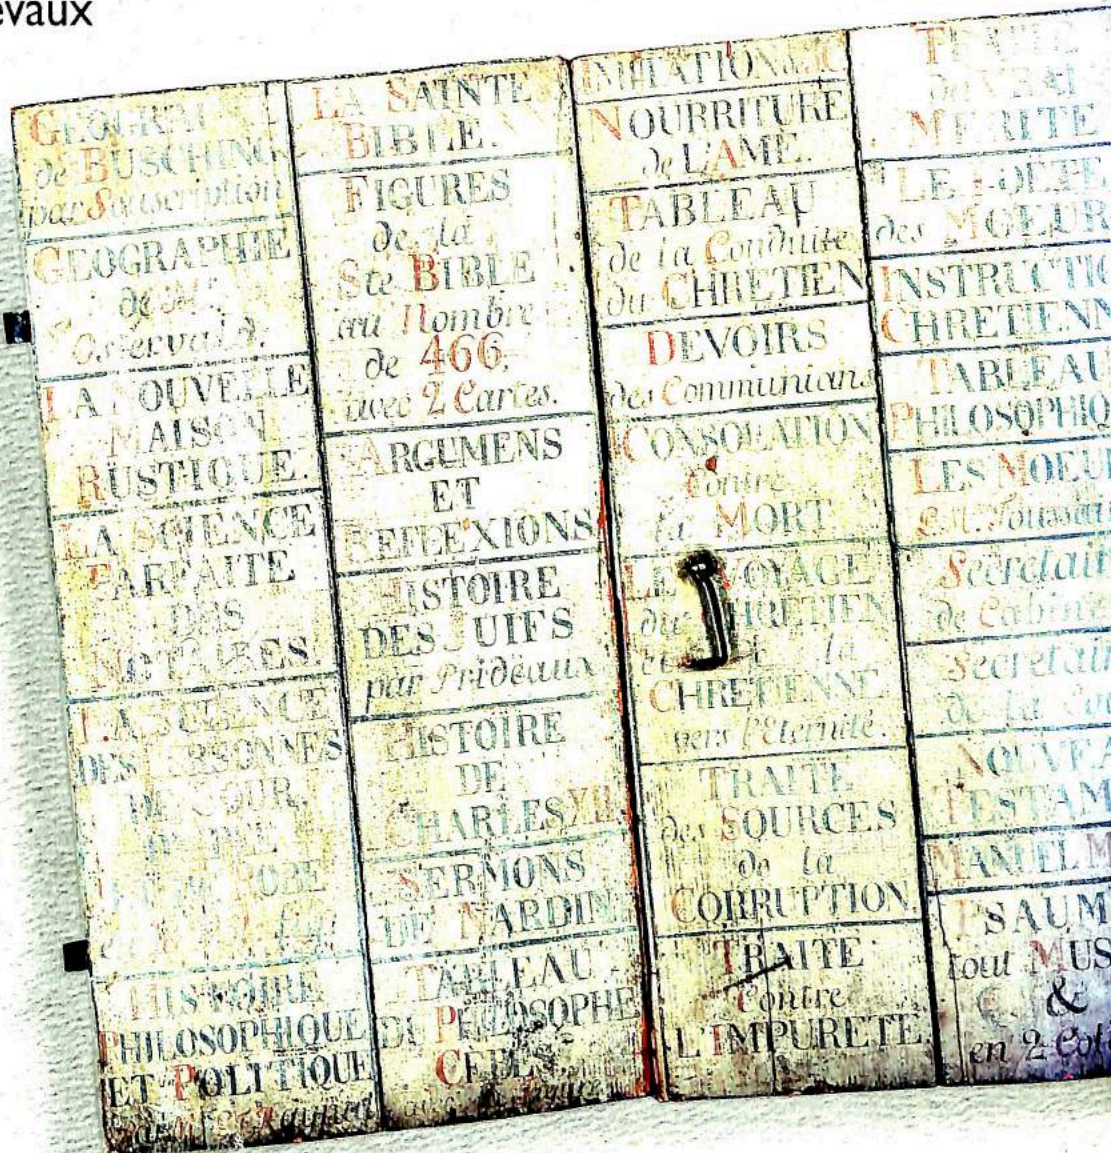 evaux
GEOGRA
de BUSCHING
par Souscription
GEOGRAPHIE
de Mr
Ostervald.
LA NOUVELLE
MAISON
RUSTIQUE.
LA SCIENCE
PARFAITE
DES
NOTAIRES.
LA SCIENCE
DES PERSONNES
DE COUR,
D'EPEE
ROBE
HISTOIRE
PHILOSOPHIQUE
ET POLITIQUE
LA SAINTE
BIBLE.
FIGURES
de la
Ste BIBLE
au Nombre
de 466,
avec 2 Cartes.
ARGUMENS
ET
REFLEXIONS
HISTOIRE
DES JUIFS
par Prideaux
HISTOIRE
DE
CHARLES XII
SERMONS
DE NARDIN
TABLEAU
DU PHILOSOPHE
CEBES
IMITATION de J C
NOURRITURE
de L'AME.
TABLEAU
de la Conduite
du CHRETIEN
DEVOIRS
des Communians
CONSOLATION
contre
la MORT
LE VOYAGE
du CHRETIEN
et la
CHRETIENNE
vers l'Eternité.
TRAITE
des SOURCES
de la
CORRUPTION
TRAITE
contre
L'IMPURETE
TRAITE
du VRAI
MERITE
LE POETE
des MOEUR
INSTRUCTIO
CHRETIENN
TABLEAU
PHILOSOPHIQ
LES MOEUR
Secretair
de Cabine
Secretair
de la Co
NOUVEA
TESTAM
MANUEL M
PSAUM
tout MUS
&
en 2 Cot